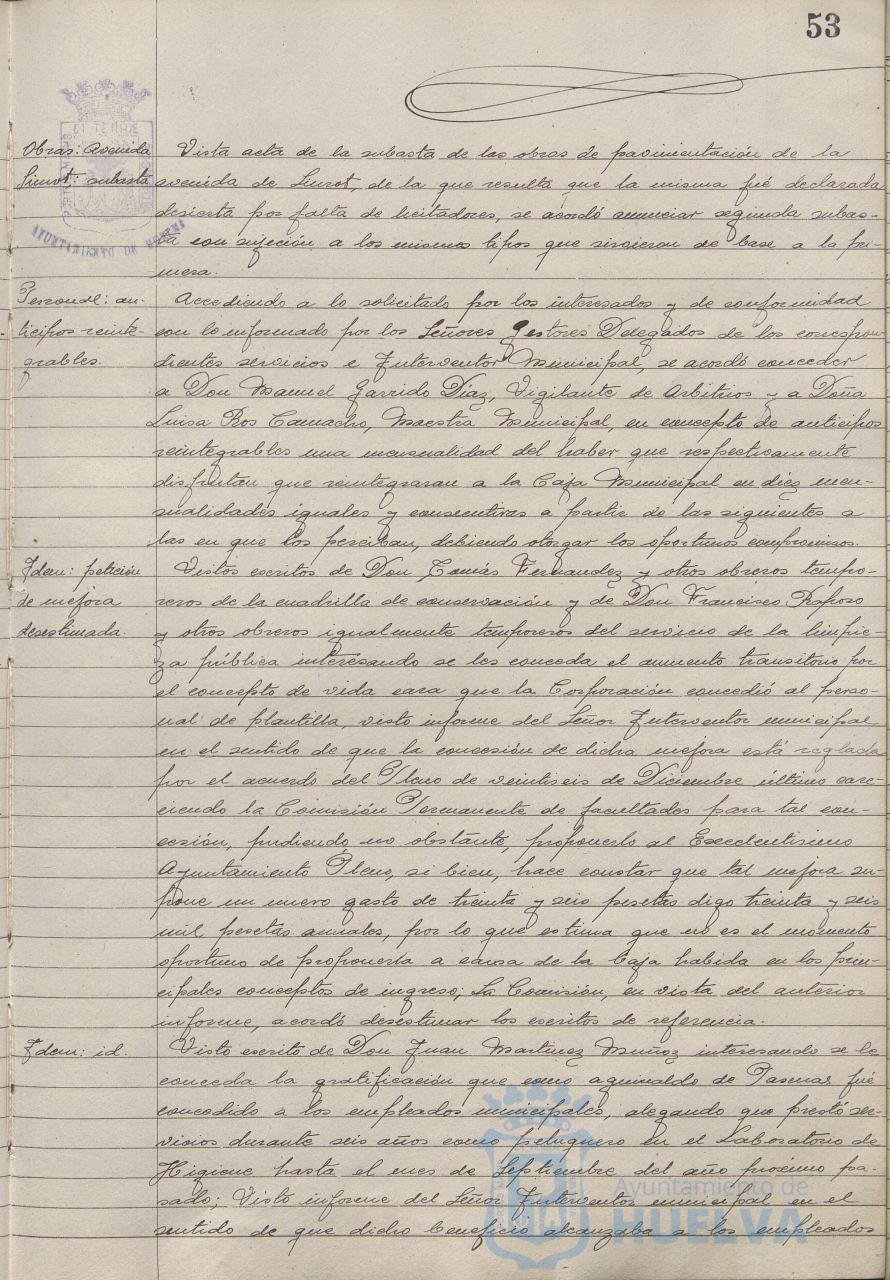 53
Obras: Avenida
Simot: subasta
Vista acta de la subasta de las obras de pavimentación de la
avenida de Simot, de la que resulta que la misma fué declarada
desierta por falta de licitadores, se acordó anunciar segunda subas-
ta con sujeción a los mismos tipos que sirvieron de base a la pri-
mera.
Personal: an-
ticipos reinte-
grables.
Accediendo a lo solicitado por los interesados y de conformidad
con lo informado por los Señores Gestores Delegados de los correspon-
dientes servicios e Interventor Municipal, se acordó conceder
a Don Manuel Garrido Díaz, Vigilante de Arbitrios y a Doña
Luisa Ros Camacho, Maestra Municipal, en concepto de anticipos
reintegrables una mensualidad del haber que respectivamente
disfrutan que reintegraran a la Caja Municipal en diez men-
sualidades iguales y consecutivas a partir de las siguientes a
las en que los perciban, debiendo otorgar los oportunos compromisos.
Idem: petición
de mejora
desestimada.
Vistos escritos de Don Tomás Fernandez y otros obreros tempo-
reros de la cuadrilla de conservación y de Don Francisco Raposo
y otros obreros igualmente temporeros del servicio de la limpie-
za pública interesando se les conceda el aumento transitorio por
el concepto de vida cara que la Corporación concedió al perso-
nal de plantilla, visto informe del Señor Interventor municipal
en el sentido de que la concesión de dicha mejora está reglada
por el acuerdo del Pleno de veintiseis de Diciembre último care-
ciendo la Comisión Permanente de facultades para tal con-
cesión, pudiendo no obstante, proponerlo al Excelentisimo
Ayuntamiento Pleno, si bien, hace constar que tal mejora su-
pone un nuevo gasto de treinta y seis pesetas digo treinta y seis
mil pesetas anuales, por lo que estima que no es el momento
oportuno de proponerla a causa de la baja habida en los prin-
cipales conceptos de ingreso; La Comisión, en vista del anterior
informe, acordó desestimar los escritos de referencia.
Idem: id.
Visto escrito de Don Juan Martinez Muñoz interesando se le
conceda la gratificación que como aguinaldo de Pascuas fué
concedido a los empleados municipales, alegando que prestó ser-
vicios durante seis años como peluquero en el Laboratorio de
Higiene hasta el mes de Septiembre del año proximo pa-
sado; Visto informe del Señor Interventor municipal en el
sentido de que dicho beneficio alcanzaba a los empleados
Ayuntamiento de
HUELVA